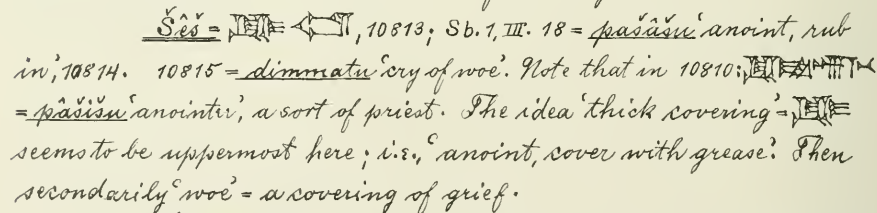 Šêš = , 10813; Sb. 1, III. 18 = pašâšu ‘anoint, rub
in’, 10814. 10815 = dimmatu ‘cry of woe’. Note that in 10810:
= pâšišu ‘anointer’, a sort of priest. The idea ‘thick covering’ =
seems to be uppermost here; i.e., ‘anoint, cover with grease’. Then
secondarily ‘woe’ = a covering of grief.